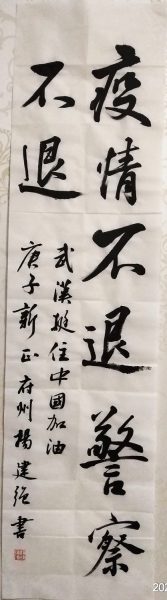 疫情不退警察
不退
武漢挺住中國加油
庚子新正府州楊建強書
202